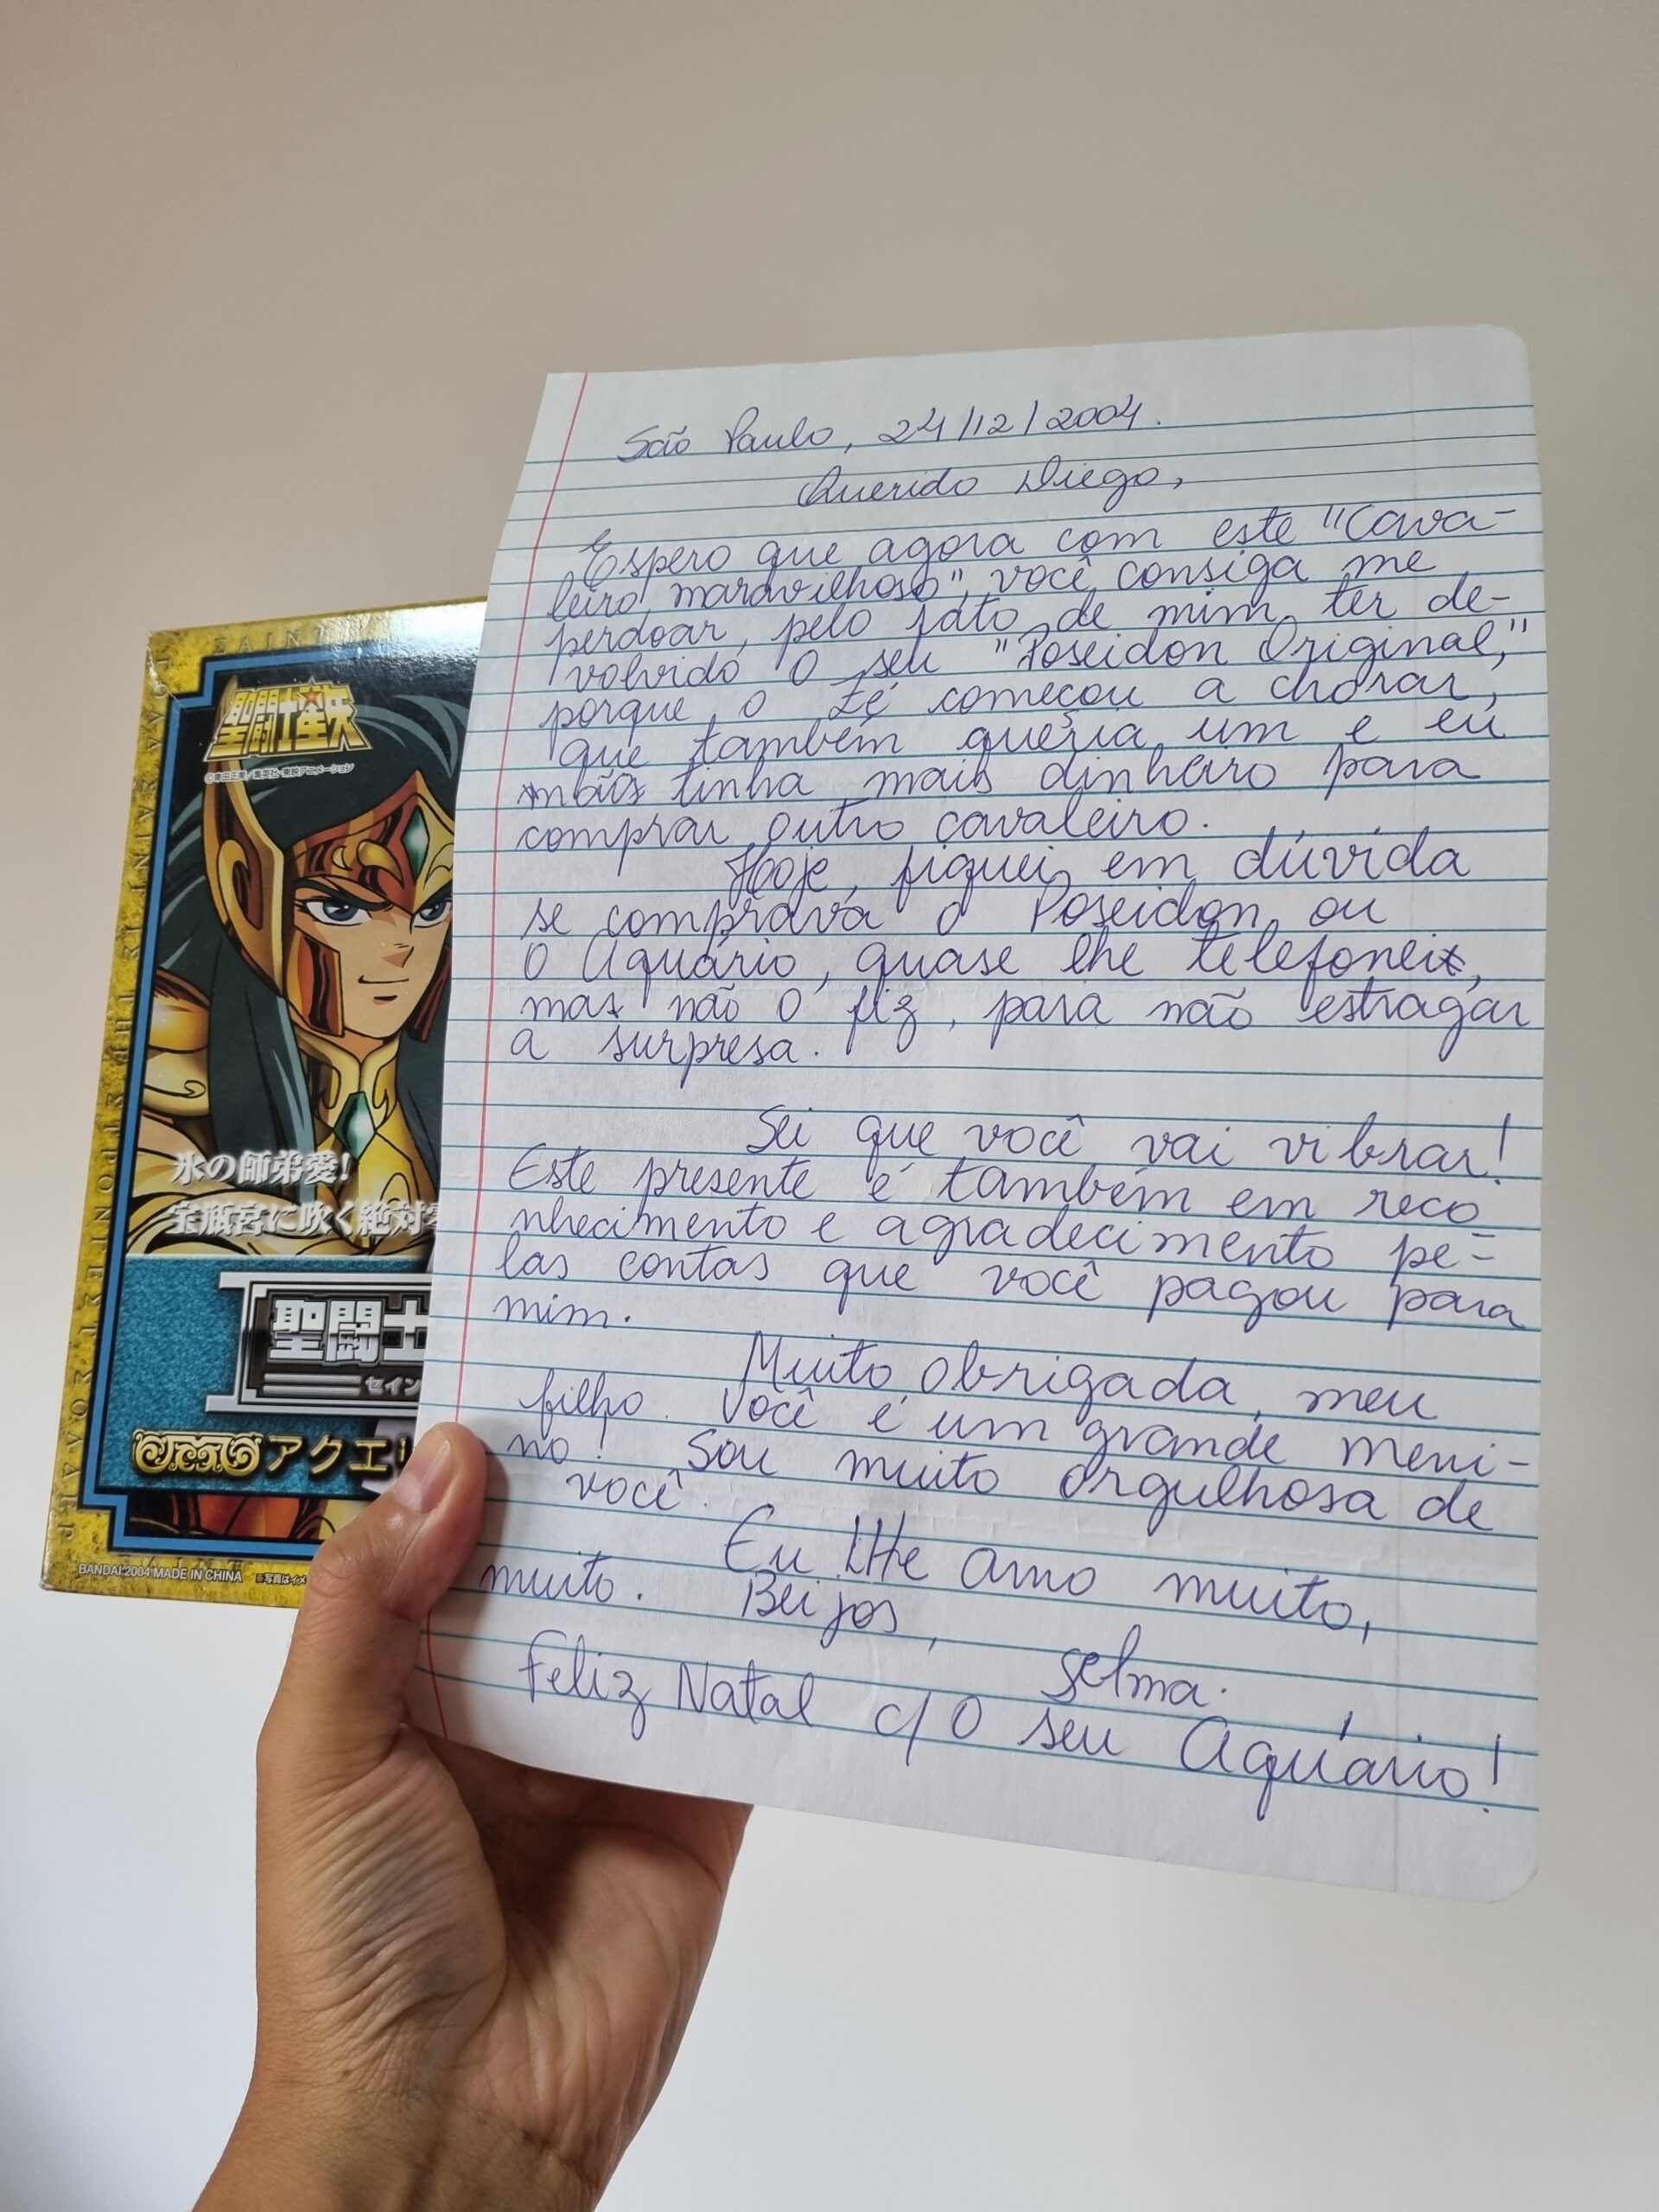 São Paulo, 24/12/2004.
Querido Diego,
Espero que agora com este "Cava-
leiro maravilhoso", você consiga me
perdoar, pelo fato de mim ter de-
volvido o seu "Poseidon Original,"
porque o Zé começou a chorar,
que também queria um e eu
não tinha mais dinheiro para
comprar outro cavaleiro.
Hoje, fiquei em dúvida
se comprava o Poseidon ou
o Aquário, quase lhe telefonei,
mas não o fiz, para não estragar
a surpresa.
Sei que você vai vibrar!
Este presente é também em reco
nhecimento e agradecimento pe=
las contas que você pagou para
mim.
Muito obrigada, meu
filho. Você é um grande meni-
no! Sou muito orgulhosa de
você.
Eu LHe amo muito,
muito. Beijos,
Selma.
Feliz Natal c/ o seu Aquário!
聖闘士星矢
©車田正美/集英社・東映アニメーション
氷の師弟愛!
宝瓶宮に吹く絶対零
聖闘士
セイン
アクエリ
BANDAI 2004 MADE IN CHINA
※写真はイメ